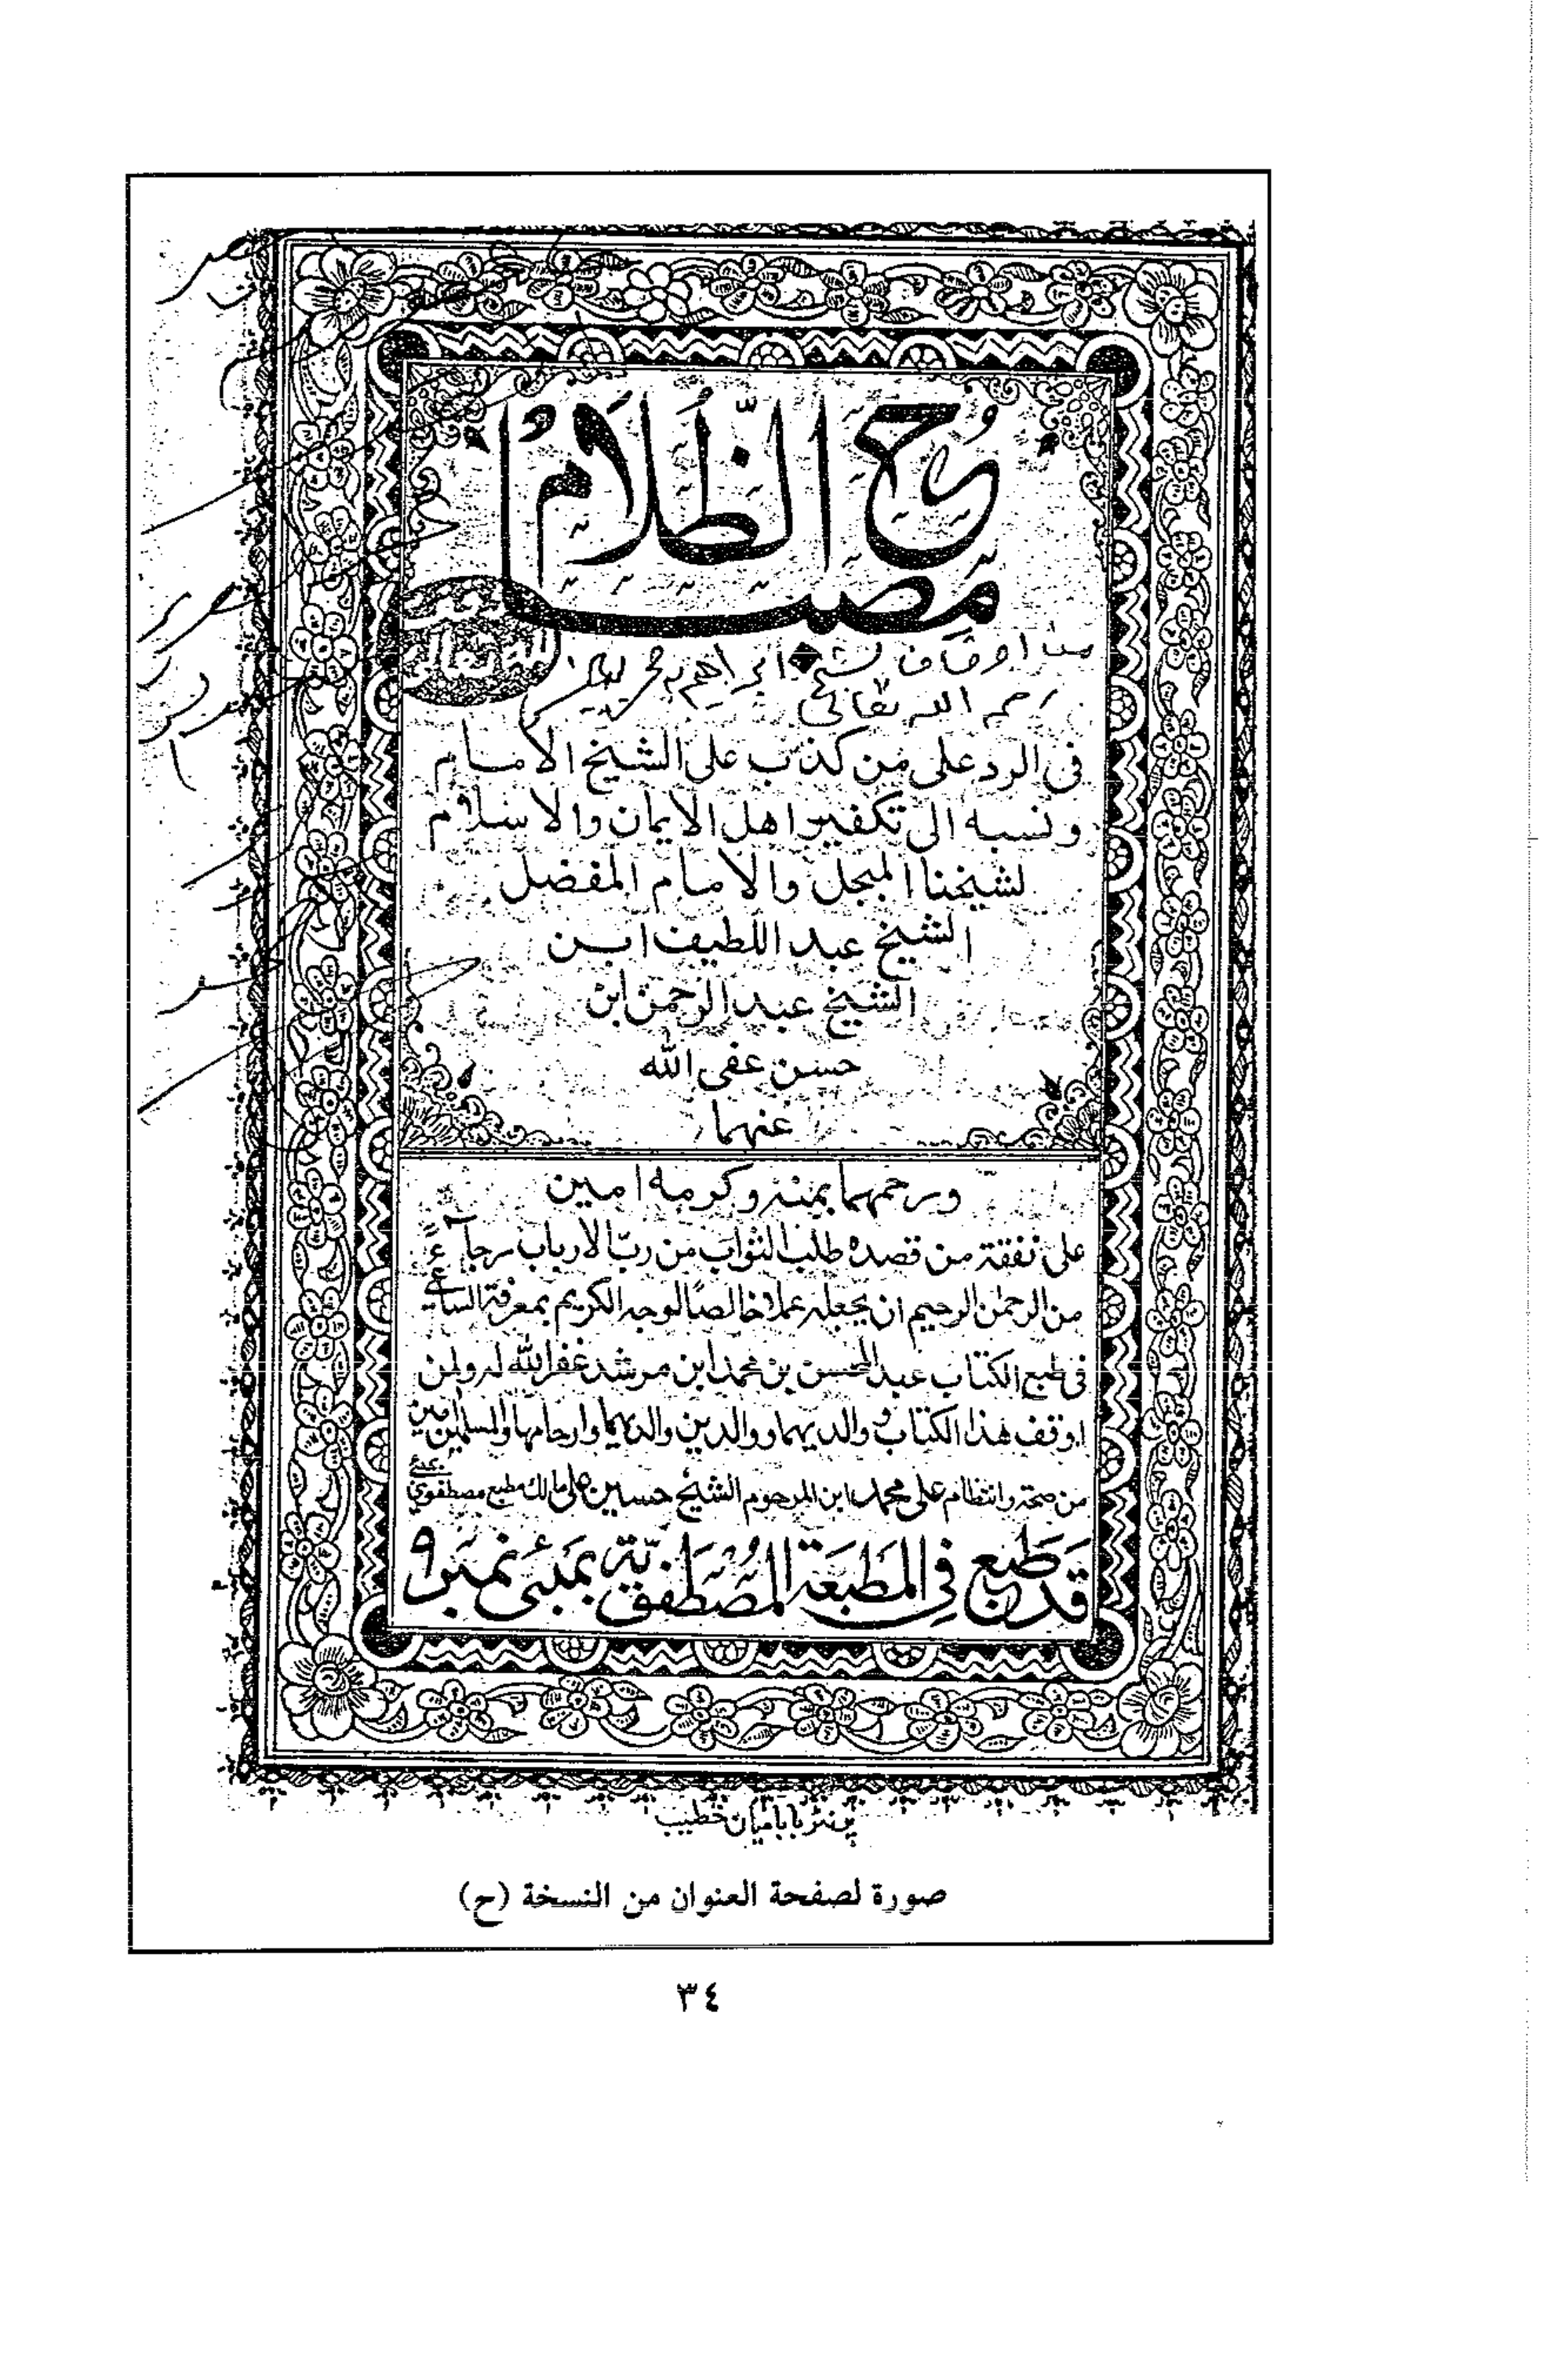 مصباح الظلام
من اوقاف الشيخ ابراهيم بن محمد
رحمه الله تعالى
فى الرد على من كذب على الشيخ الامام
ونسبه الى تكفير اهل الايمان والاسلام
لشيخنا المبجل والامام المفضل
الشيخ عبد اللطيف ابن
الشيخ عبد الرحمن ابن
حسن عفى الله
عنهما
ورحمهما بمنه وكرمه امين
على نفقة من قصده طلب الثواب من ربّ الارباب رجآءً
من الرحمن الرحيم ان يجعله عملا خالصًا لوجه الكريم بمعرفة الساعى
فى طبع الكتاب عبد المحسن بن محمد ابن مرشد غفر الله له ولمن
اوقف هذا الكتاب ووالديهما ووالدين والديهما وارحامهما والمسلمين امين
من صحة وانتظام على محمد ابن المرحوم الشيخ حسين على مالك مطبع مصطفوي
قد طبع في المطبعة المصطفوية بمبئ نمبر ٩
پرنٹر بابا میان خطیب
صورة لصفحة العنوان من النسخة (ح)
٣٤